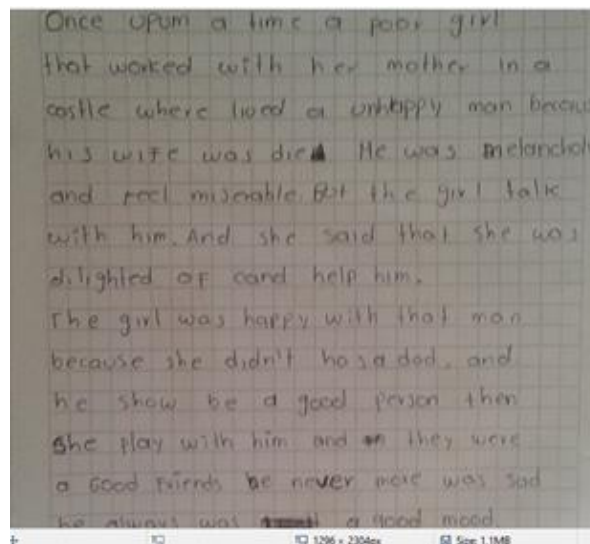 Once upum a time a poor girl
that worked with her mother in a
castle where lived a unhappy man becau
his wife was died He was melanchol
and feel miserable. But the girl talk
with him. And she said that she was
dilighted of cand help him.
The girl was happy with that man
because she didn't has a dad. and
he show be a good person then
she play with him and they were
a Good Friends he never more was sad
he always was a good mood
1296 x 2304px
Size: 1.1MB